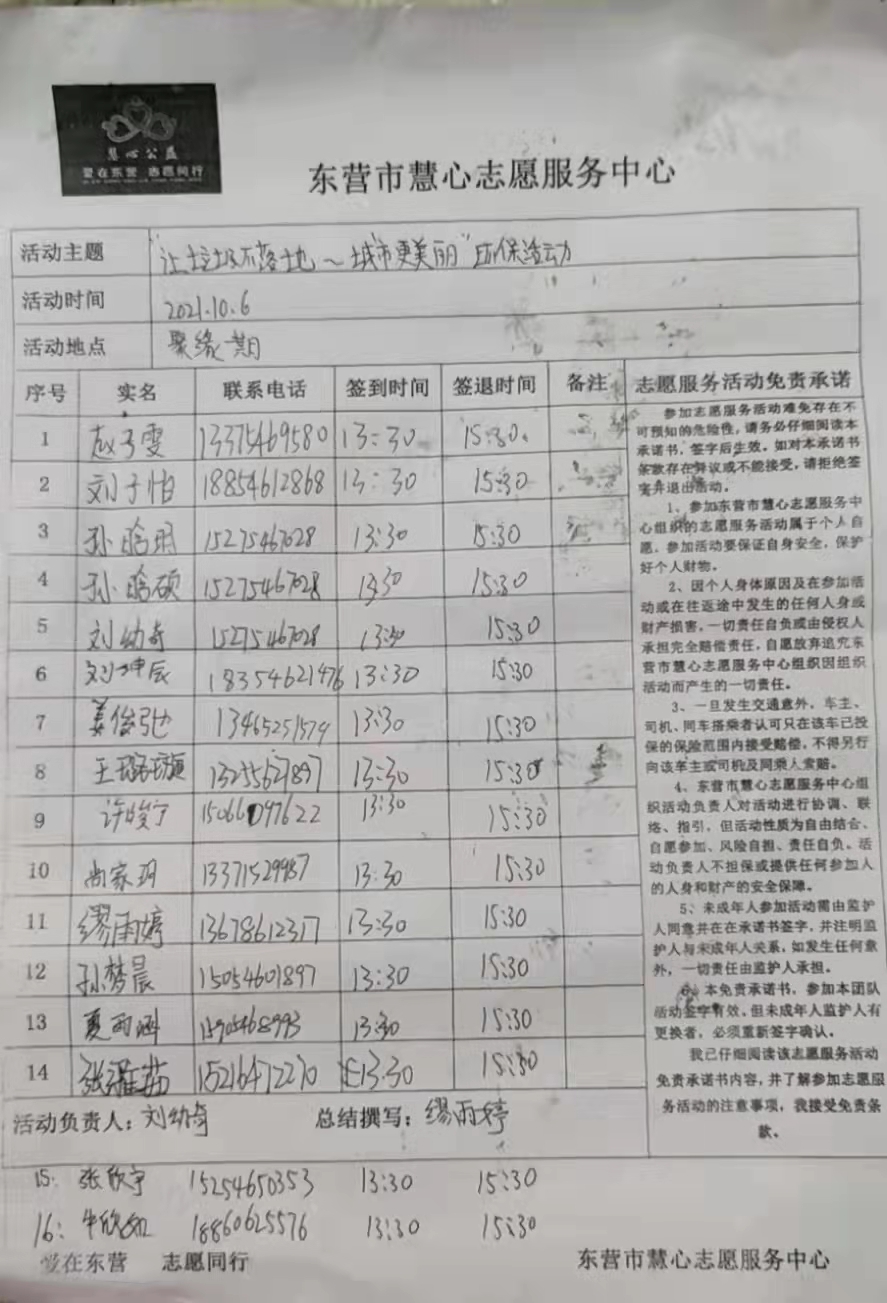 慧心公益
爱在东营 志愿同行
东营市慧心志愿服务中心
活动主题 "让垃圾不落地~城市更美丽"环保活动
活动时间 2021.10.6
活动地点 聚缘一期
序号 实名 联系电话 签到时间 签退时间 备注 志愿服务活动免责承诺
1 赵子雯 13375469580 13:30 15:30.
2 刘子怡 18854612868 13:30 15:30
3 孙晗玥 15275467028 13:30 15:30
4 孙晗硕 15275467028 13:30 15:30
5 刘幼奇 15275467028 13:30 15:30
6 刘坤辰 18354621476 13:30 15:30
7 姜俊弛 13465251574 13:30 15:30
8 王璐璇 13255621897 13:30 15:30
9 许峻宁 15066097622 13:30 15:30
10 尚家玥 13371529987 13:30 15:30
11 缪雨婷 13678612317 13:30 15:30
12 孙梦晨 15054601897 13:30 15:30
13 夏雨涵 15905468993 13:30 15:30
14 张濯茹 15216472270 13:30 15:30
参加志愿服务活动难免存在不
可预知的危险性,请务必仔细阅读本
承诺书,签字后生效。如对本承诺书
条款存在异议或不能接受,请拒绝签
字并退出活动。
1、参加东营市慧心志愿服务中
心组织的志愿服务活动属于个人自
愿,参加活动要保证自身安全,保护
好个人财物。
2、因个人身体原因及在参加活
动或在往返途中发生的任何人身或
财产损害,一切责任自负或由侵权人
承担完全赔偿责任,自愿放弃追究东
营市慧心志愿服务中心组织因组织
活动而产生的一切责任。
3、一旦发生交通意外,车主、
司机、同车搭乘者认可只在该车已投
保的保险范围内接受赔偿,不得另行
向该车主或司机及同乘人索赔。
4、东营市慧心志愿服务中心组
织活动负责人对活动进行协调、联
络、指引,但活动性质为自由结合、
自愿参加、风险自担、责任自负。活
动负责人不担保或提供任何参加人
的人身和财产的安全保障。
5、未成年人参加活动需由监护
人同意并在在承诺书签字,并注明监
护人与未成年人关系,如发生任何意
外,一切责任由监护人承担。
6、本免责承诺书,参加本团队
活动签字有效。但未成年人监护人有
更换者,必须重新签字确认。
我已仔细阅读该志愿服务活动
免责承诺书内容,并了解参加志愿服
务活动的注意事项,我接受免责条
款。
活动负责人:刘幼奇 总结撰写:缪雨婷
15: 张欣宇 15254650353 13:30 15:30
16: 牛欣如 18860625576 13:30 15:30
爱在东营 志愿同行 东营市慧心志愿服务中心